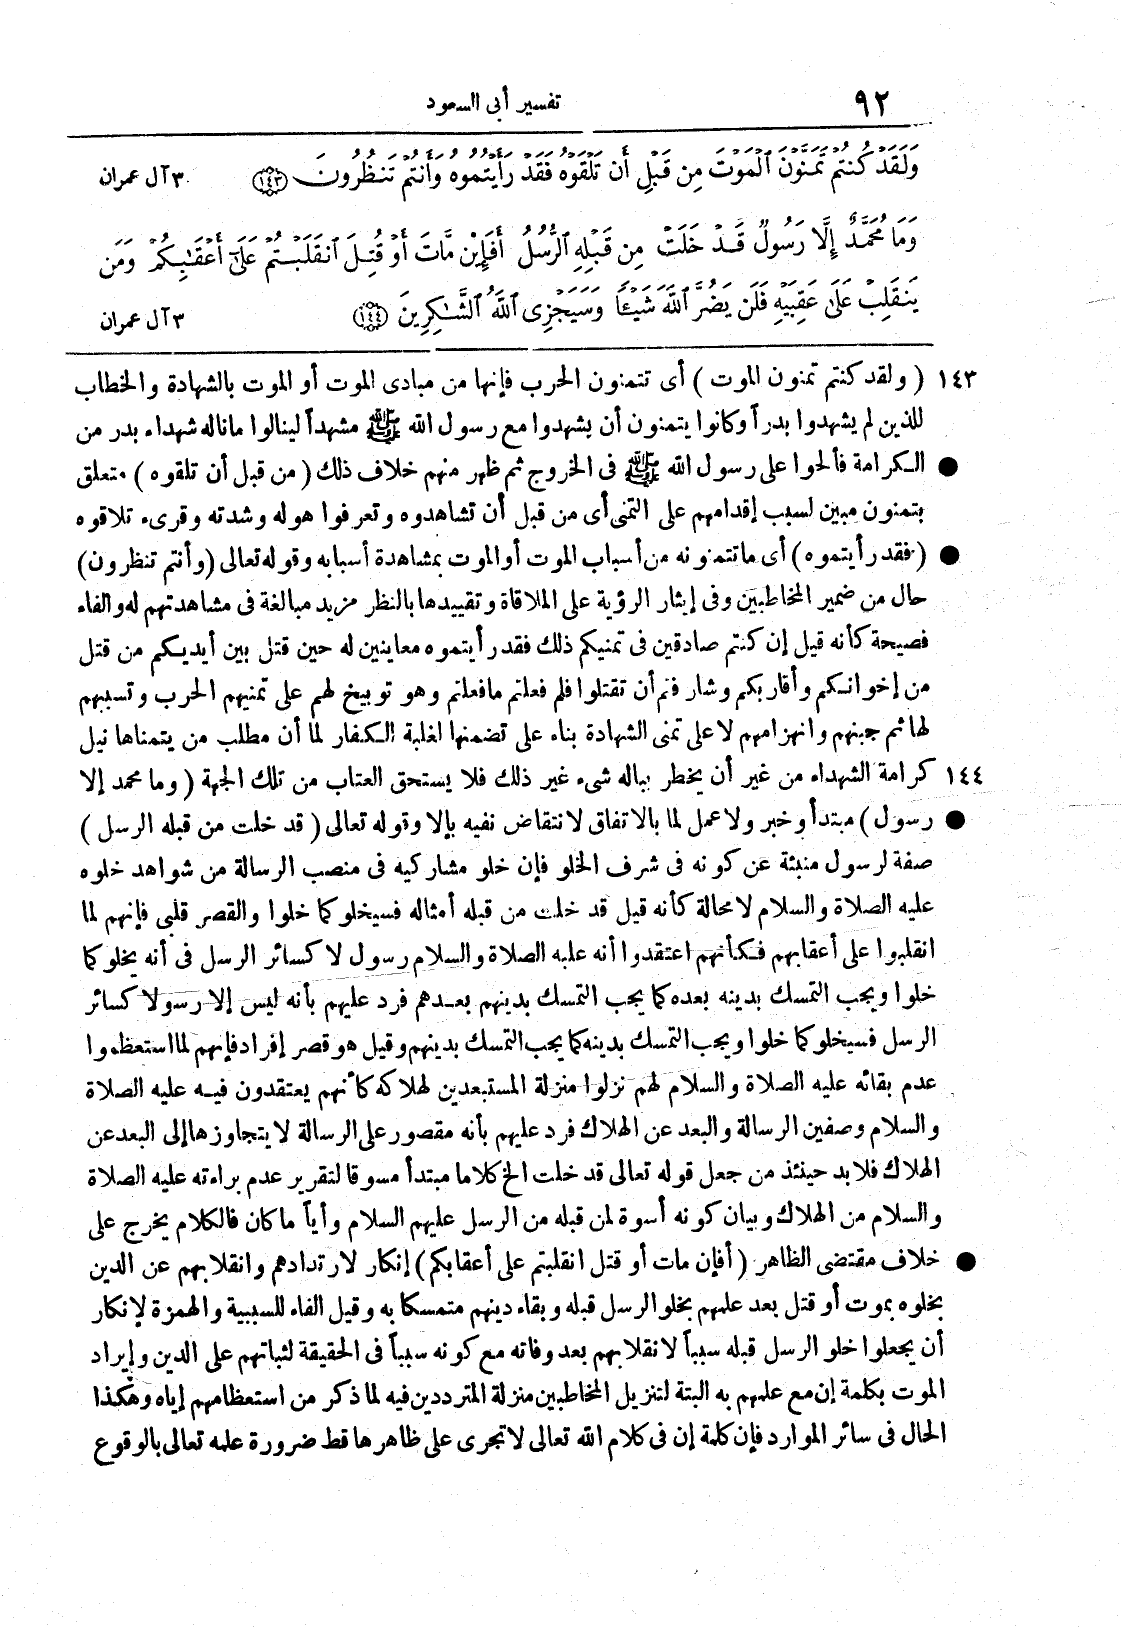 ٩٢ تفسير أبى السعود
وَلَقَدْ كُنتُمْ تَمَنَّوْنَ ٱلْمَوْتَ مِن قَبْلِ أَن تَلْقَوْهُ فَقَدْ رَأَيْتُمُوهُ وَأَنتُمْ تَنظُرُونَ ﴿١٤٣﴾ ٣ آل عمران
وَمَا مُحَمَّدٌ إِلَّا رَسُولٌ قَدْ خَلَتْ مِن قَبْلِهِ ٱلرُّسُلُ أَفَإِيْن مَّاتَ أَوْ قُتِلَ ٱنقَلَبْتُمْ عَلَىٰٓ أَعْقَٰبِكُمْ وَمَن
يَنقَلِبْ عَلَىٰ عَقِبَيْهِ فَلَن يَضُرَّ ٱللَّهَ شَيْـًٔا وَسَيَجْزِى ٱللَّهُ ٱلشَّٰكِرِينَ ﴿١٤٤﴾ ٣ آل عمران
١٤٣ ( ولقد كنتم تمنون الموت ) أى تتمنون الحرب فإنها من مبادى الموت أو الموت بالشهادة والخطاب
للذين لم يشهدوا بدراً وكانوا يتمنون أن يشهدوا مع رسول الله ﷺ مشهداً لينالوا ما ناله شهداء بدر من
● الكرامة فألحوا على رسول الله ﷺ فى الخروج ثم ظهر منهم خلاف ذلك ( من قبل أن تلقوه ) متعلق
بتمنون مبين لسبب إقدامهم على التمنى أى من قبل أن تشاهدوه وتعرفوا هوله وشدته وقرىء تلاقوه
● (فقد رأيتموه) أى ما تتمنونه من أسباب الموت أو الموت بمشاهدة أسبابه وقوله تعالى (وأنتم تنظرون)
حال من ضمير المخاطبين وفى إيثار الرؤية على الملاقاة وتقييدها بالنظر مزيد مبالغة فى مشاهدتهم له والفاء
فصيحة كأنه قيل إن كنتم صادقين فى تمنيكم ذلك فقد رأيتموه معاينين له حين قتل بين أيديكم من قتل
من إخوانكم وأقاربكم وشارفتم أن تقتلوا فلم فعلتم ما فعلتم وهو توبيخ لهم على تمنيهم الحرب وتسببهم
لها ثم جبنهم وانهزامهم لا على تمنى الشهادة بناء على تضمنها لغلبة الكفار لما أن مطلب من يتمناها نيل
١٤٤ كرامة الشهداء من غير أن يخطر بباله شىء غير ذلك فلا يستحق العتاب من تلك الجهة ( وما محمد إلا
● رسول ) مبتدأ وخبر ولا عمل لما بالاتفاق لانتقاض نفيه بإلا وقوله تعالى ( قد خلت من قبله الرسل )
صفة لرسول منبئة عن كونه فى شرف الخلو فإن خلو مشاركيه فى منصب الرسالة من شواهد خلوه
عليه الصلاة والسلام لا محالة كأنه قيل قد خلت من قبله أمثاله فسيخلو كما خلوا والقصر قلبى فإنهم لما
انقلبوا على أعقابهم فكأنهم اعتقدوا أنه عليه الصلاة والسلام رسول لا كسائر الرسل فى أنه يخلو كما
خلوا ويجب التمسك بدينه بعده كما يجب التمسك بدينهم بعدهم فرد عليهم بأنه ليس إلا رسولا كسائر
الرسل فسيخلو كما خلوا ويجب التمسك بدينه كما يجب التمسك بدينهم وقيل هو قصر إفراد فإنهم لما استعظموا
عدم بقائه عليه الصلاة والسلام لهم نزلوا منزلة المستبعدين لهلاكه كأنهم يعتقدون فيه عليه الصلاة
والسلام وصفين الرسالة والبعد عن الهلاك فرد عليهم بأنه مقصور على الرسالة لا يتجاوزها إلى البعد عن
الهلاك فلا بد حينئذ من جعل قوله تعالى قد خلت الخ كلاما مبتدأ مسوقا لتقرير عدم براءته عليه الصلاة
والسلام من الهلاك وبيان كونه أسوة لمن قبله من الرسل عليهم السلام وأياً ما كان فالكلام يخرج على
● خلاف مقتضى الظاهر ( أفإن مات أو قتل انقلبتم على أعقابكم ) إنكار لارتدادهم وانقلابهم عن الدين
بخلوه بموت أو قتل بعد علمهم بخلو الرسل قبله وبقاء دينهم متمسكا به وقيل الفاء للسببية والهمزة لإنكار
أن يجعلوا خلو الرسل قبله سبباً لانقلابهم بعد وفاته مع كونه سبباً فى الحقيقة لثباتهم على الدين وإيراد
الموت بكلمة إن مع علمهم به البتة لتنزيل المخاطبين منزلة المترددين فيه لما ذكر من استعظامهم إياه وهكذا
الحال فى سائر الموارد فإن كلمة إن فى كلام الله تعالى لا تجرى على ظاهرها قط ضرورة علمه تعالى بالوقوع